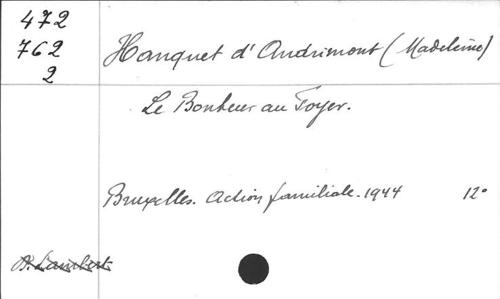 472
762
2
Hanquet d'Andrimont (Madeleine)
Le Bonheur au Foyer.
Bruxelles. Action familiale. 1944 12°
B. Lambert